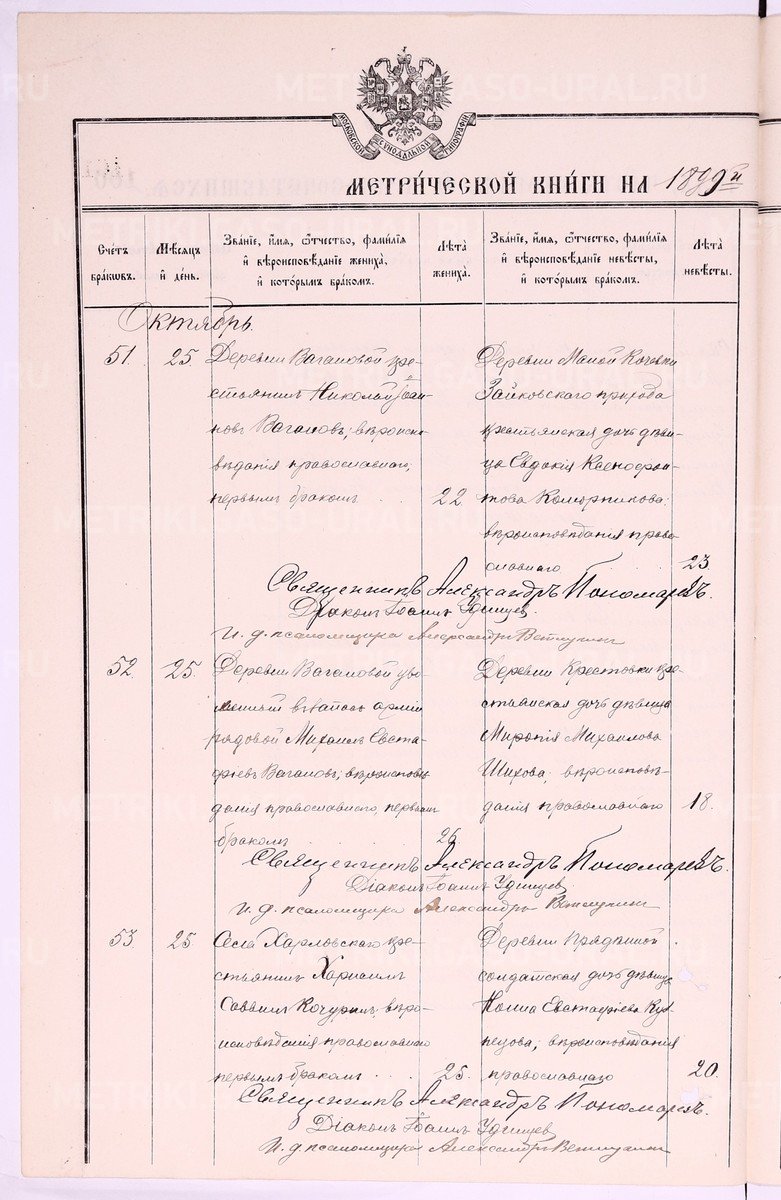 МОСКОВСКОЙ СѴНОДАЛЬНОЙ ТИПОГРАФІИ
МЕТРИ́ЧЕСКОЙ КНИ́ГИ НА 1899й
Сче́тъ бра́кѡвъ.
Мѣ́сѧцъ и҆ де́нь.
Зва́нїе, и҆́мѧ, ѻ҆́тчество, фами́лїѧ
и҆ вѣроисповѣ́данїе жениха̀,
и҆ кото́рымъ бра́комъ.
Лѣ́та жениха̀.
Зва́нїе, и҆́мѧ, ѻ҆́тчество, фами́лїѧ
и҆ вѣроисповѣ́данїе невѣ́сты,
и҆ кото́рымъ бра́комъ.
Лѣ́та невѣ́сты.
Октябрь.
51. 25. Деревни Вагановой кре-
стьянинъ Николай Іоан-
новъ Вагановъ, вѣроиспо-
вѣданія православнаго,
первымъ бракомъ . . . 22
Деревни Малой Кочевки
Зайковскаго прихода
крестьянская дочь дѣви-
ца Евдокія Ксенофон-
това Коморникова;
вѣроисповѣданія право-
славнаго . . . 23.
Священникъ Александръ Пономаревъ.
Діаконъ Іоаннъ Удинцев.
И. д. псаломщика Александръ
52. 25. Деревни Вагановой уво-
ленный въ запасъ арміи
рядовой Михаилъ Евста-
фіевъ Вагановъ, вѣроисповѣ-
данія православнаго, первымъ
бракомъ . . . 26
Деревни Крестовки кре-
стьянская дочь дѣвица
Миропія Михаилова
Шихова; вѣроисповѣ-
данія православнаго 18.
Священникъ Александръ Пономаревъ.
Діаконъ Іоаннъ Удинцев
И. д. псаломщика Александръ
53. 25. Села Харловскаго кре-
стьянинъ Харисимъ
Саввинъ Кочуринъ, вѣро-
исповѣданія православнаго
первымъ бракомъ . . . 25.
Деревни
солдатская дочь дѣвица
Евстафіева Куз-
нецова, вѣроисповѣданія
православнаго 20.
Священникъ Александръ Пономаревъ.
Діаконъ Іоаннъ Удинцев
И. д. псаломщика Александръ